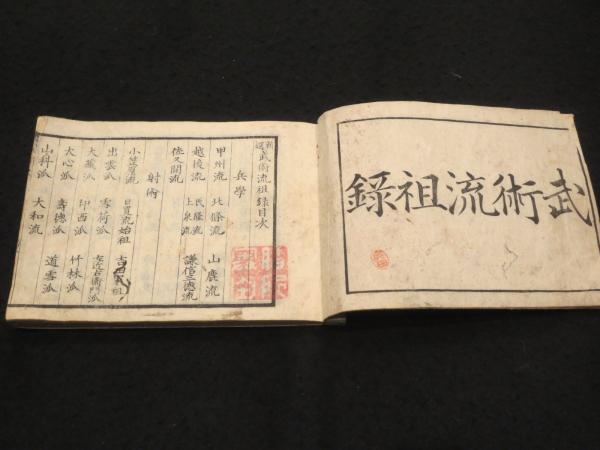 武術流祖錄
新撰武術流祖録目次
兵學
甲州流 北條流 山鹿流
越後流 氏隆流 謙信三徳流
佐久間流 上泉流
射術
小笠原流 日置流始祖
出雲派 雪荷派 左近右衛門派
大蔵派 印西派
大心派 壽德派 竹林派
山科派 大和流 道雪派